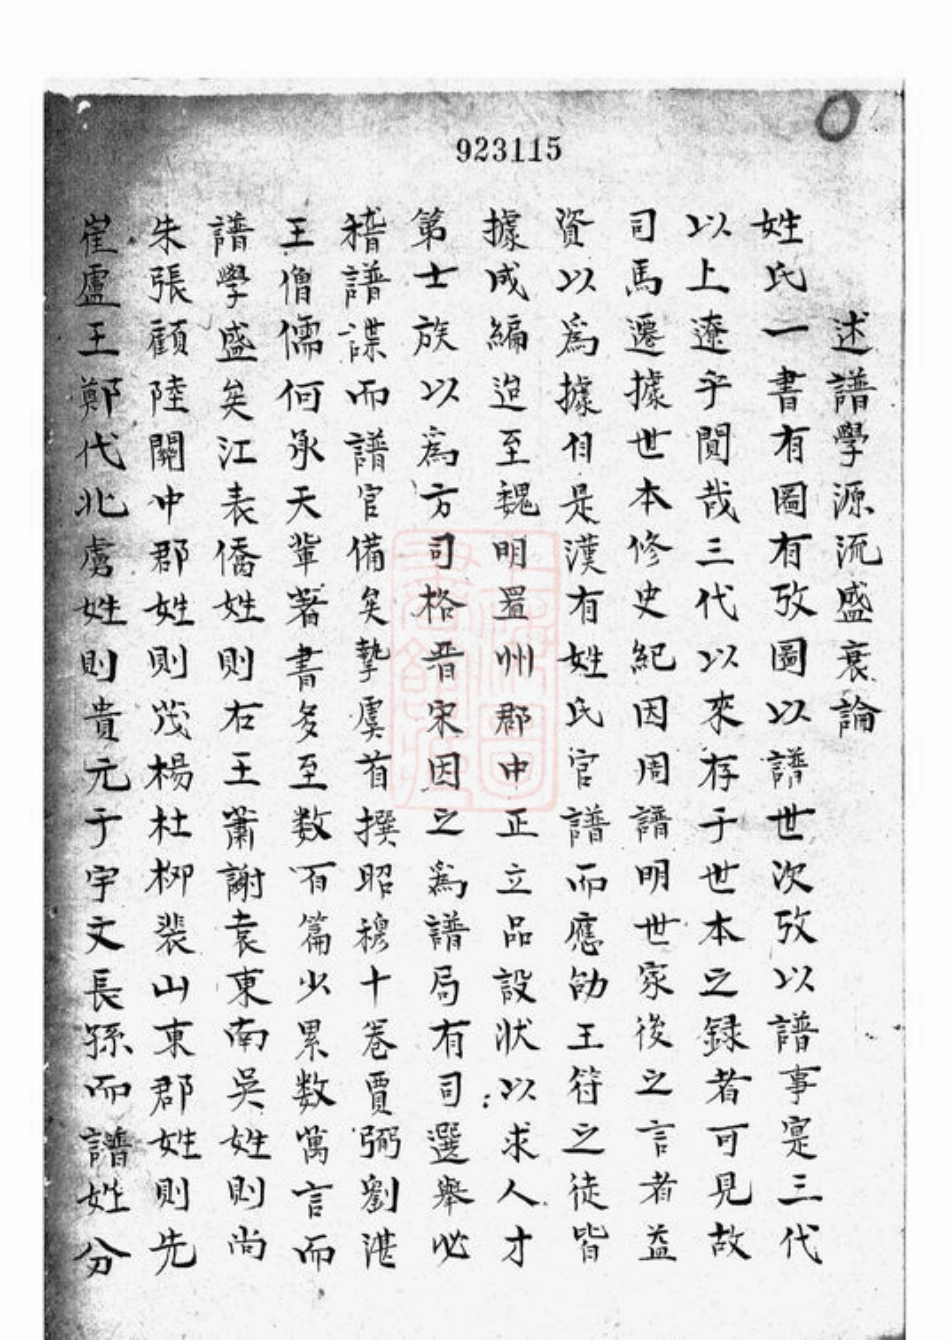 923115
述譜學源流盛衰論
姓氏一書有圖有攷圖以譜世次攷以譜事寔三代
以上遼乎閴哉三代以來存于世本之録者可見故
司馬遷據世本修史紀因周譜明世家後之言者益
資以爲據自是漢有姓氏官譜而應劭王符之徒皆
據成編迨至魏明置州郡中正立品設狀以求人才
第士族以爲方司格晋宋因之爲譜局有司選舉必
稽譜諜而譜官備矣摯虞首撰昭穆十卷賈弼劉湛
王僧儒何承天軰著書多至数百篇少累数萬言而
譜學盛矣江表僑姓則右王蕭謝袁東南吳姓則尚
朱張顧陸關中郡姓則茂楊杜栁裴山東郡姓則先
崔盧王鄭代北虜姓則貴元于宇文長孫而譜姓分